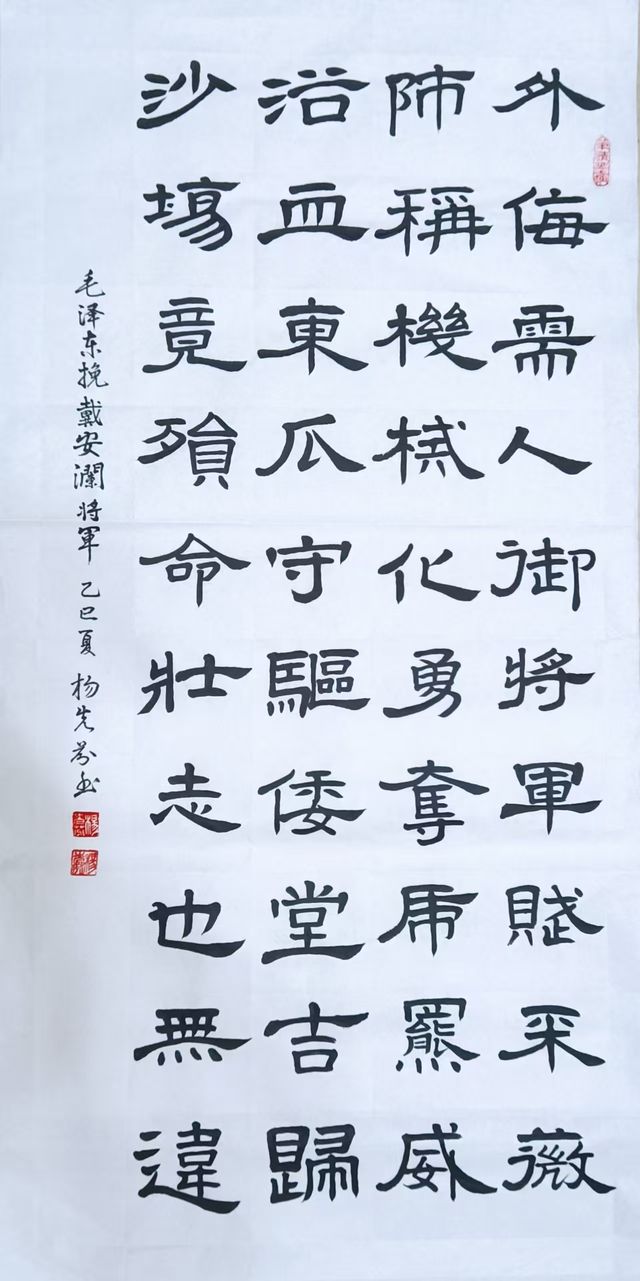 外侮需人御將軍賦采薇
師稱機械化勇奪虎羆威
浴血東瓜守驅倭堂吉歸
沙場竟殞命壯志也無違
毛泽东挽戴安瀾将軍 乙巳夏 杨先芬书